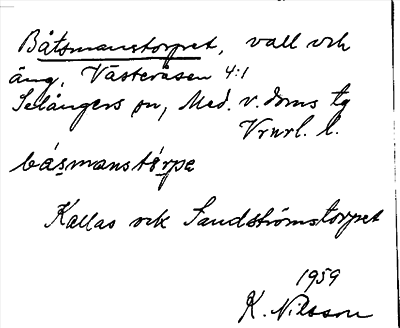 Båtsmanstorpet, vall och
äng, Västeråsen 4:1
Selångers sn, Med. v. doms tg
Vrnrl. l.
básmanstórpe
Kallas ock Sandströmstorpet
1959
K. Nilsson